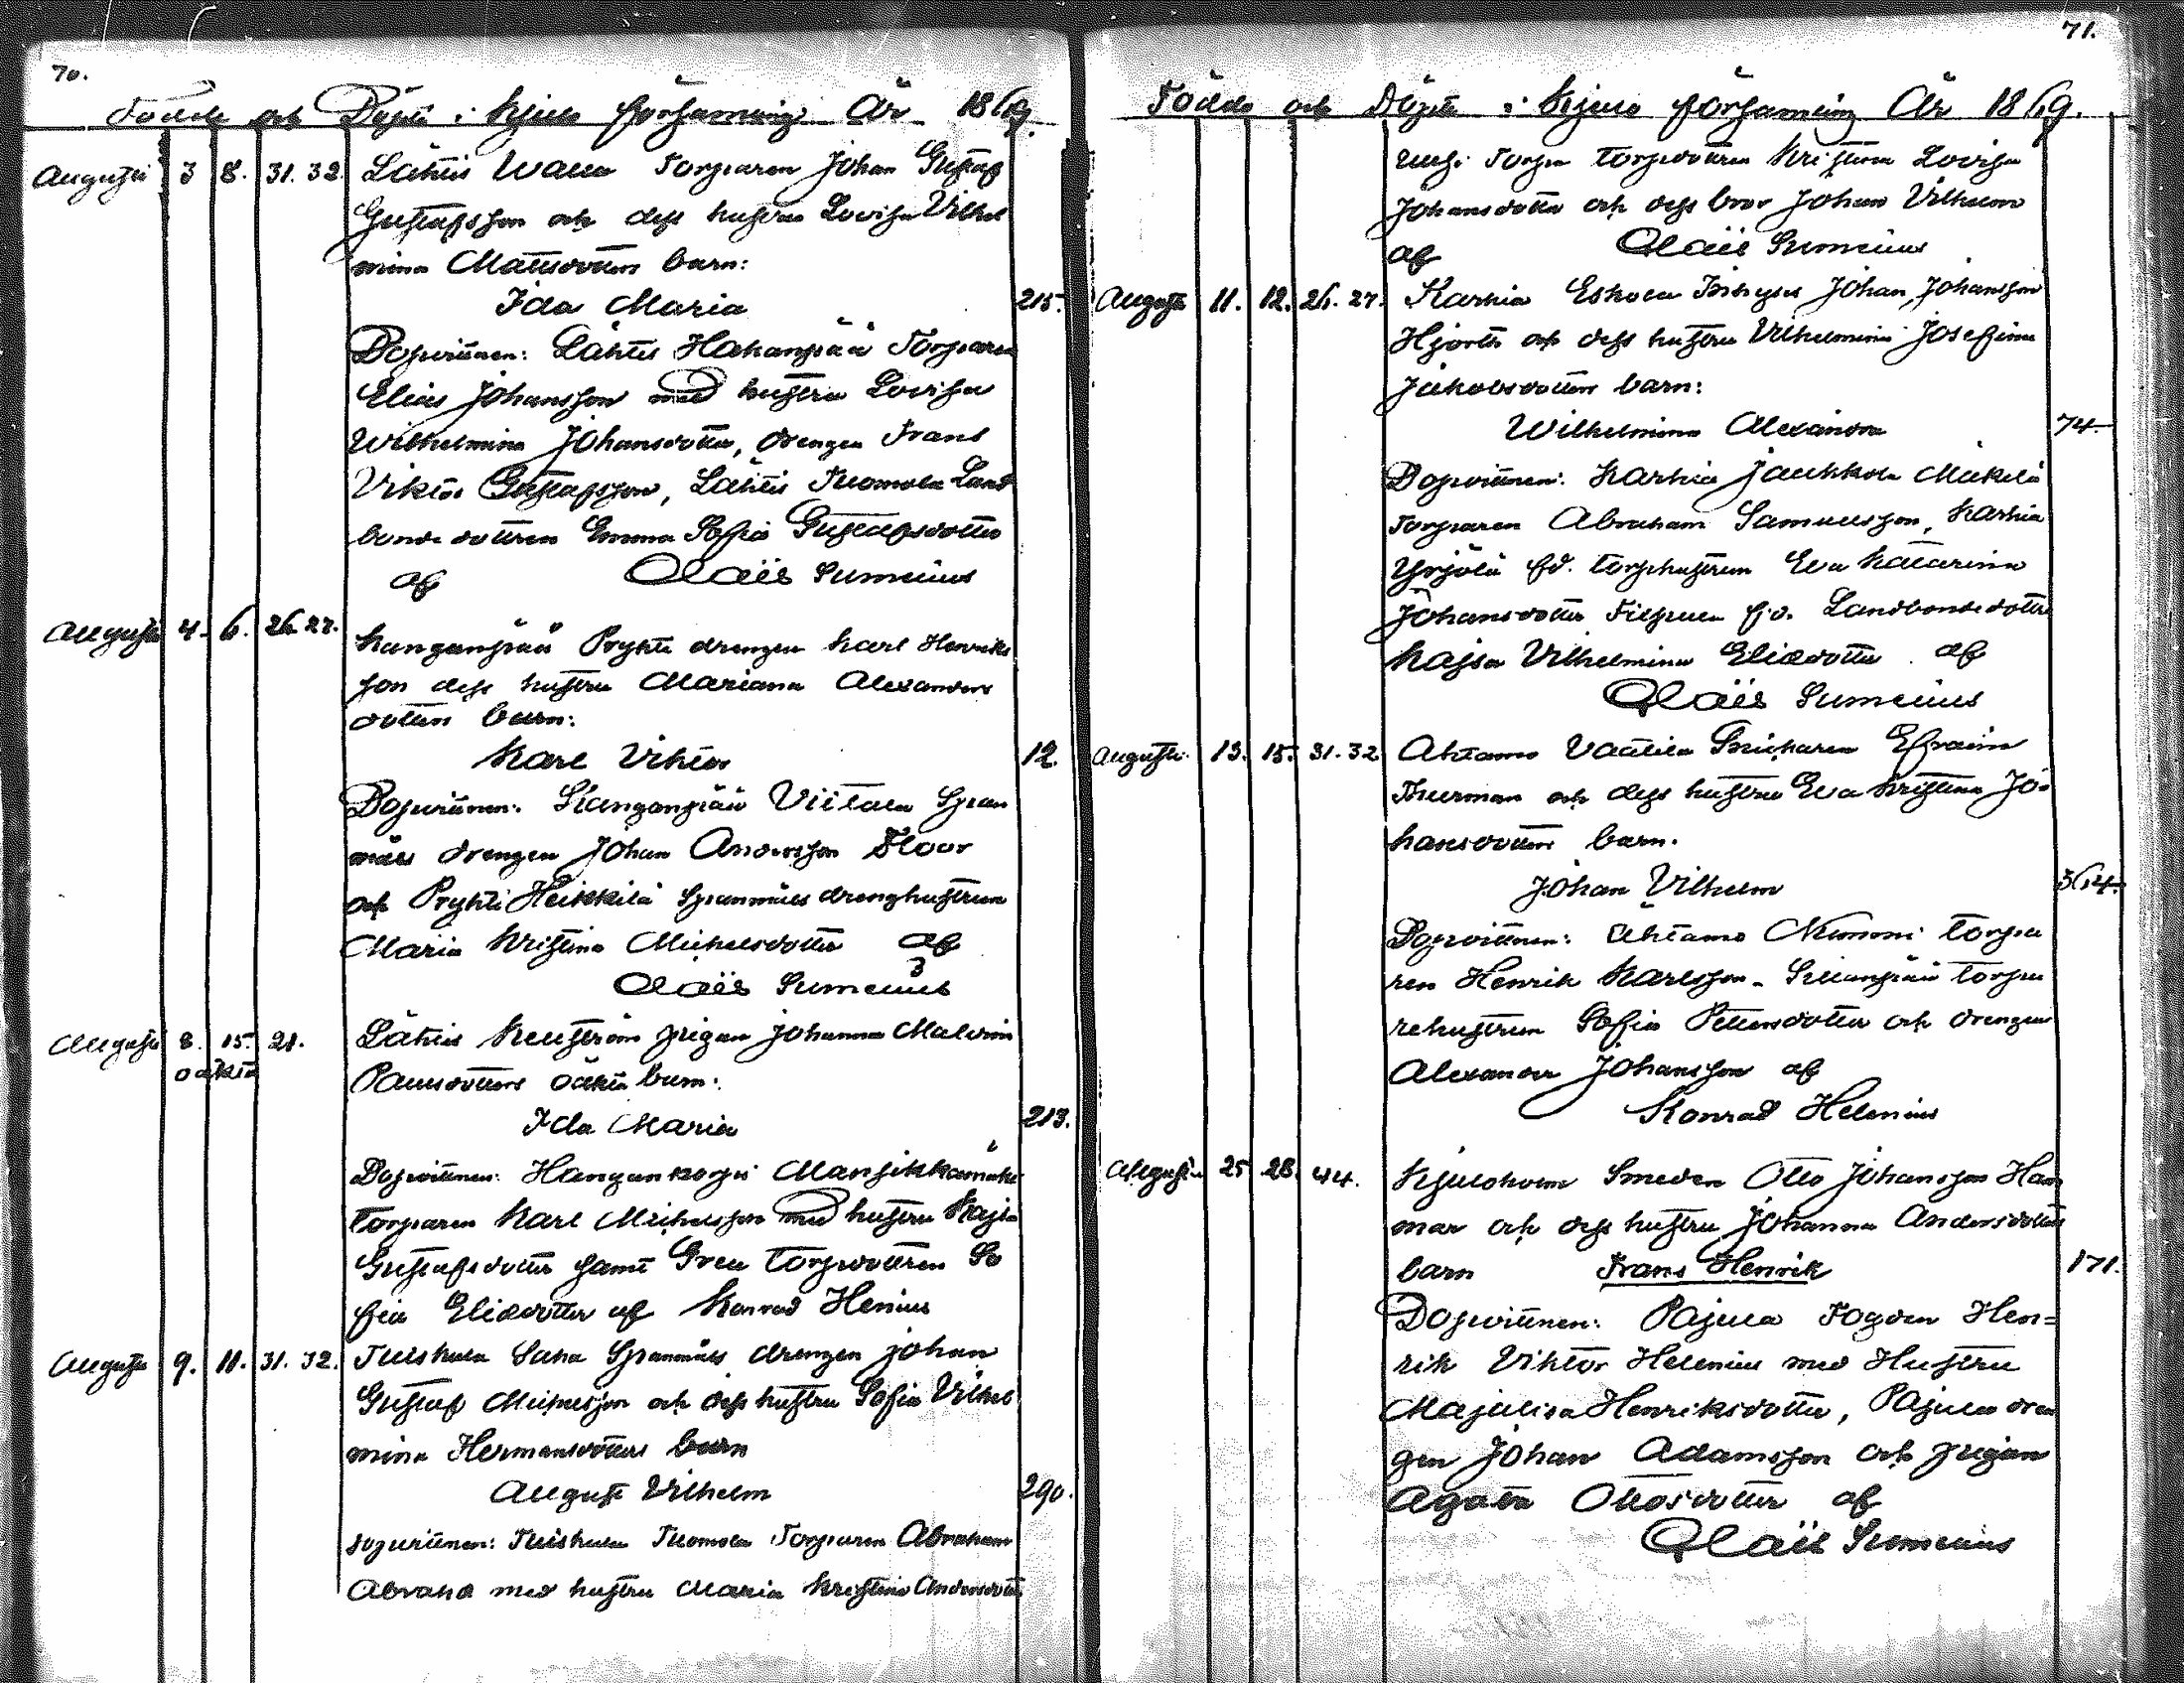 70.
Födde och Döpte i Kjulo församling År 1869.
Augusti 3 8. 31. 32. Lähtis Walla Torparen Johan Gustaf
Gustafsson och dess hustru Lovisa Vilhel
mina Mattsdotters barn:
Ida Maria 215.
Dopvittnen: Lähtis Hakanpää Torparen
Elias Johansson med hustru Lovisa
Wilhelmina Johansdotter, drengen Frans
Viktor Gustafsson, Lähtis Tuomola Land
bonde dottren Emma Sofia Gustafsdotter
af Olaus Sumelius
Augusti 4. 6. 26. 27. Kanganpää Prykti drengen Karl Henriks
son dess hustru Mariana Alexanders
dotters barn:
Karl Viktor 12.
Dopvittnen: Kanganpää Viitala Span
måls drengen Johan Andersson Floor
och Prykti Heikkilä Spanmåls drenghustrun
Maria Kristina Michelsdotter af
Olaus Sumelius
Augusti 8. 15. 21. Lähtis priga Johanna Malvina
oäkta Paulsdotters oäkta barn:
Ida Maria 213.
Dopvittnen: Mansikkamäki
torparen Karl Michelsson med hustru Kajsa
Gustafsdotter samt torpdottren So
fia Eliedotter af Konrad Helenius
Augusti 9. 11. 31. 32. Tuiskula Saha Spanmåls drengen Johan
Gustaf Michelsson och dess hustru Sofia Vilhel
mina Hermansdotters barn
August Vilhelm 290.
Dopvittnen: Tuiskula Tuomola Torparen Abraham
Abraha med hustru Maria Kristina Andersdotter
71.
Födde och Döpte i Kjulo församling År 1869.
torpdottren Kristina Lovisa
Johansdotter och dess bror Johan Vilhelm
af Olaus Sumelius
Augusti 11. 12. 26. 27. Karhia Eskola Inhyses Johan Johansson
Hjorth och dess hustru Vilhelmina Josefina
Jakobsdotters barn:
Wilhelmina Alexandra 74.
Dopvittnen: Karhia Jaukkola Mickelä
Torparen Abraham Samuelsson, Karhia
Yrjölä fd. torphustrun Eva Katarina
Johansdotter f.d. Landbondedotter
Kajsa Vilhelmina Eliedotter af
Olaus Sumelius
Augusti 13. 15. 31. 32. Ahtamo Vaatila Snickaren Efraim
Thurman och dess hustru Eva Kristina Jo-
hansdotters barn.
Johan Vilhelm 364.
Dopvittnen: Ahtamo Nummi torpa
ren Henrik Karlsson. Suuanpää torpa
rehustrun Sofia Pettersdotter och drengen
Alexander Johansson af
Konrad Helenius
Augusti 25 28. 44. Kjuloholm Smeden Otto Johansson Ham
mar och dess hustru Johanna Andersdotters
barn Frans Henrik 171.
Dopvittnen: Pajula Fogden Hen=
rik Viktor Helenius med Hustru
Majalisa Henriksdotter, Pajula dren
gen Johan Adamsson och pigan
Agata Ottosdotter af
Olaus Sumelius